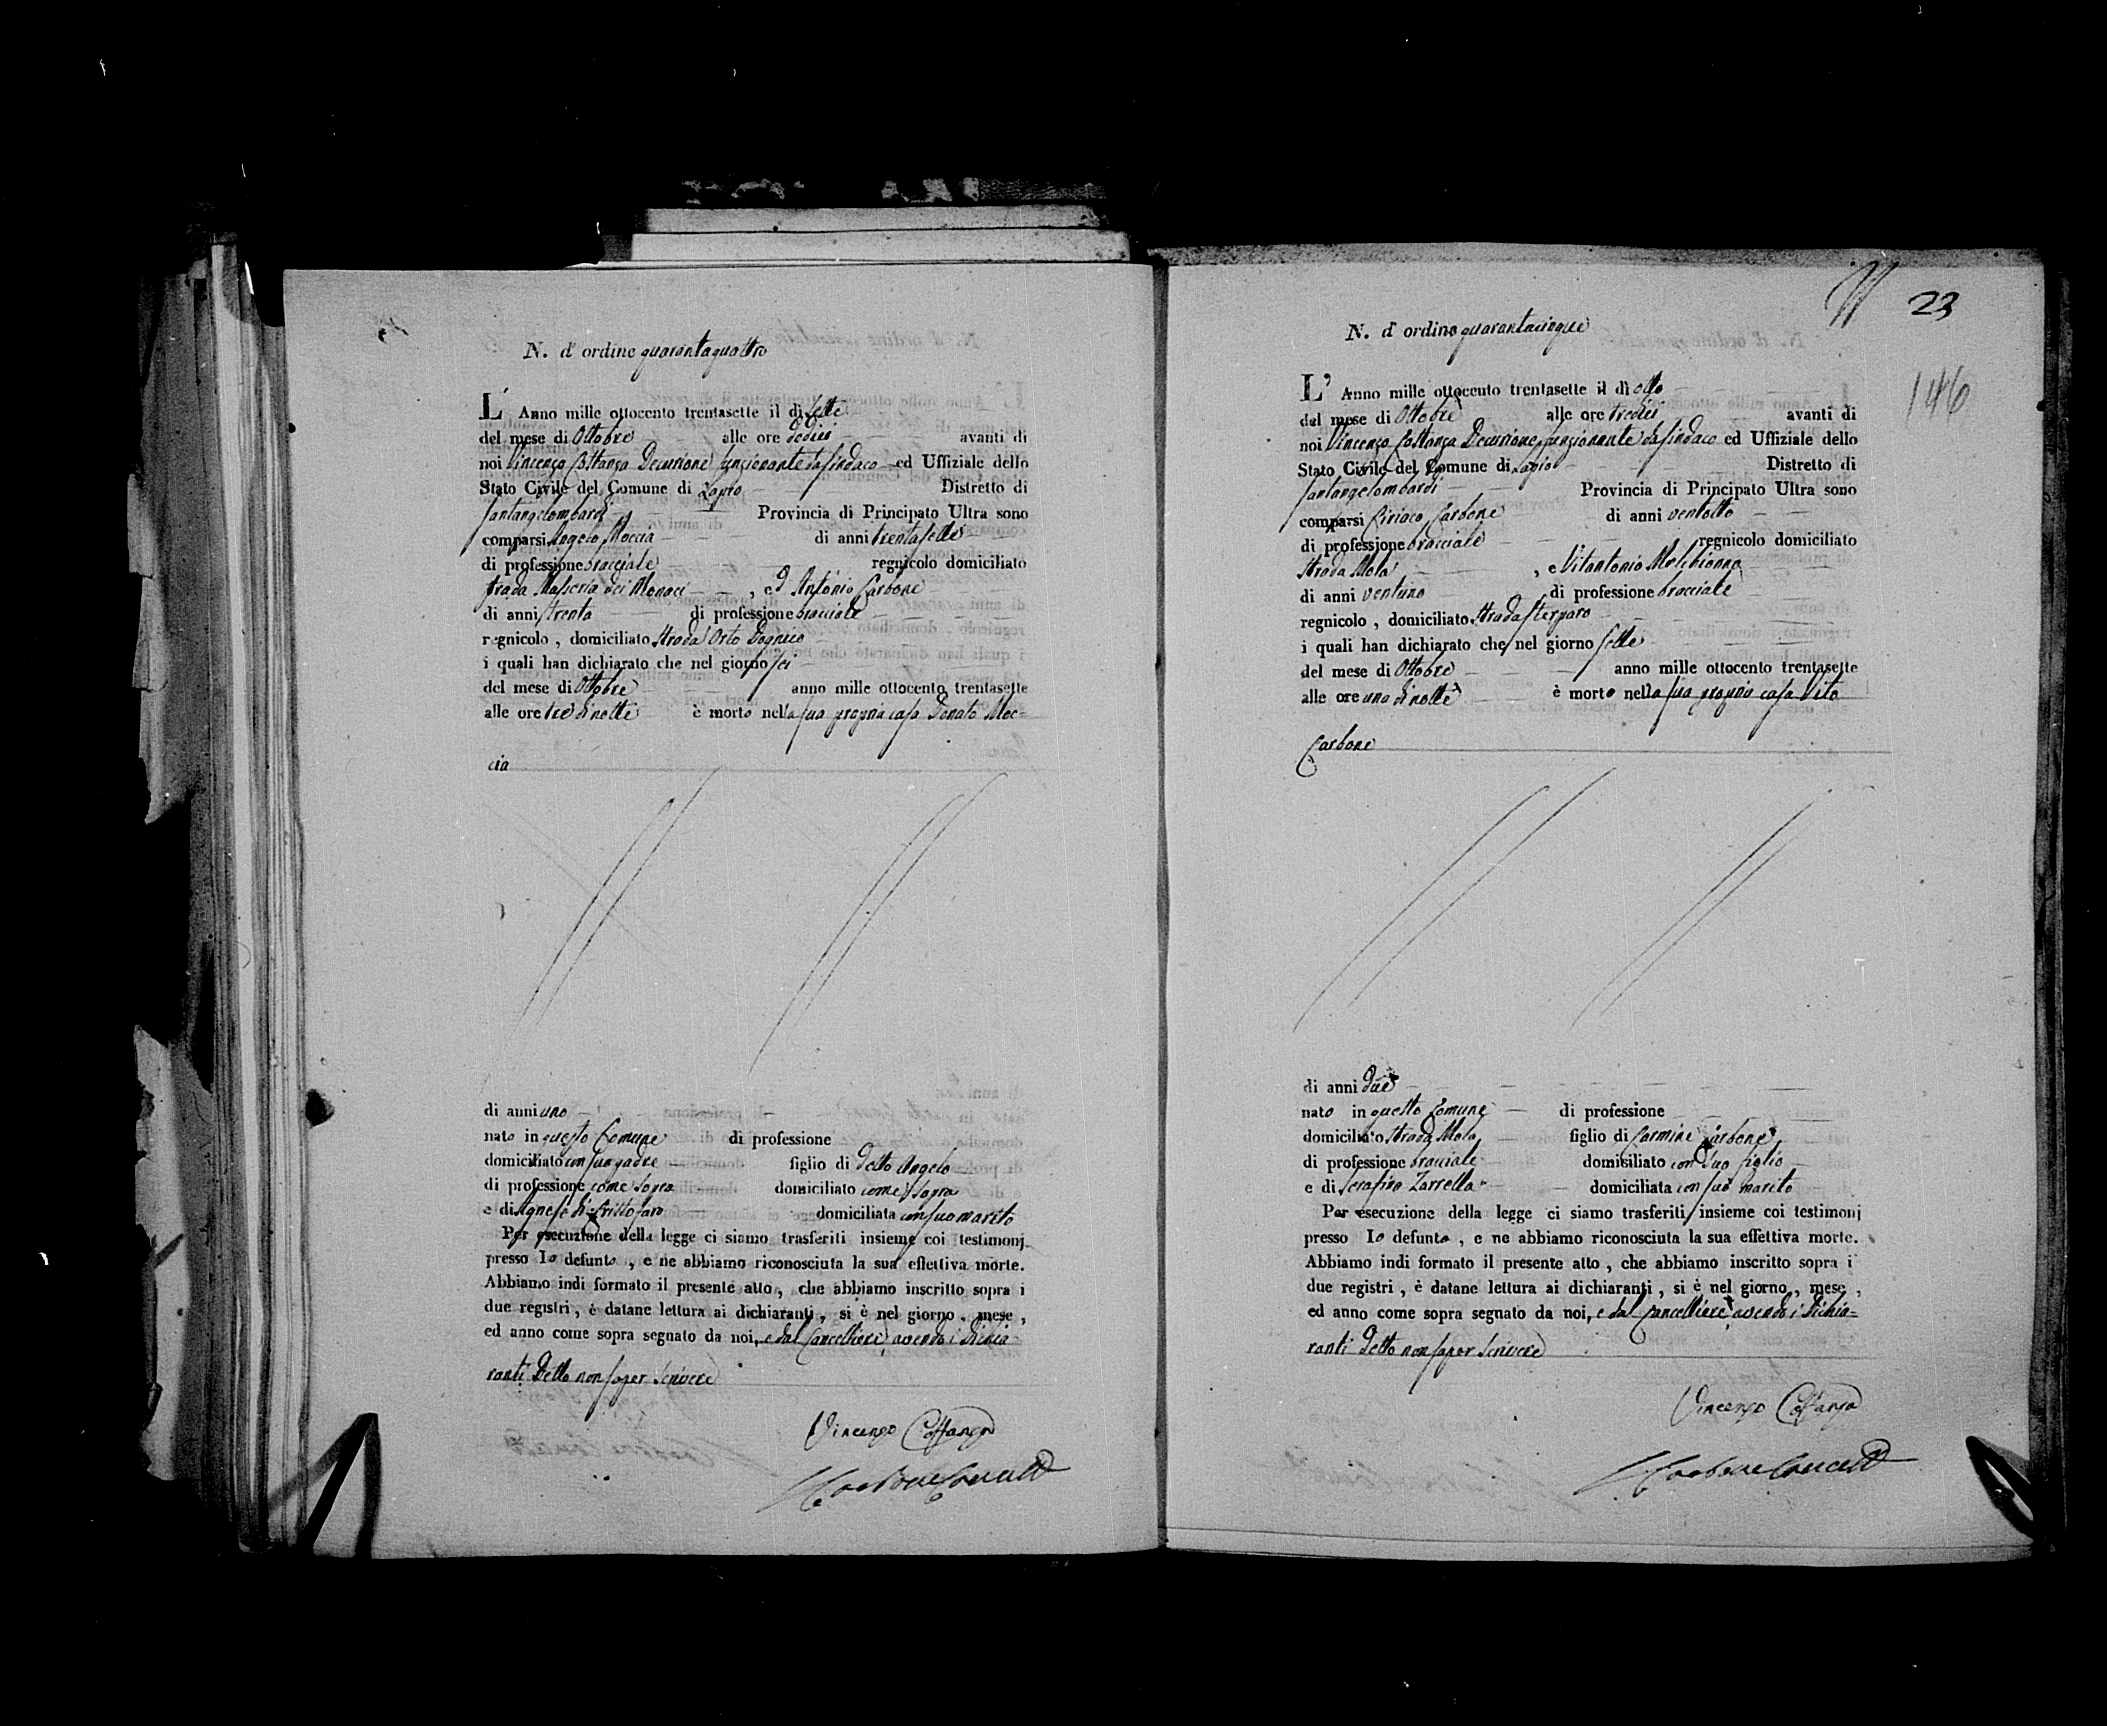 N. d' ordine quarantaquattro
L' Anno mille ottocento trentasette il dì sette
del mese di Ottobre alle ore dodici avanti di
noi Vincenzo Costanza Decurione funzionante da Sindaco ed Uffiziale dello
Stato Civile del Comune di Lapio Distretto di
Santangelombardi Provincia di Principato Ultra sono
comparsi Angelo Moccia di anni trentasette
di professione bracciale regnicolo domiciliato
strada Masseria dei Monaci , ed Antonio Carbone
di anni trenta di professione bracciale
regnicolo , domiciliato strada Orto
i quali han dichiarato che nel giorno sei
del mese di Ottobre anno mille ottocento trentasette
alle ore tre di notte è morto nella sua propria casa Donato Moc=
cia
di anni uno
nato in questo Comune di professione
domiciliato con suo padre figlio di detto Angelo
di professione come sopra domiciliato come sopra
e di Agnese di Cristofaro domiciliata con suo marito
Per esecuzione della legge ci siamo trasferiti insieme coi testimonj
presso lo defunto , e ne abbiamo riconosciuta la sua effettiva morte.
Abbiamo indi formato il presente atto , che abbiamo inscritto sopra i
due registri , è datane lettura ai dichiaranti , si è nel giorno , mese ,
ed anno come sopra segnato da noi, e dal Cancelliere, avendo i dichia=
ranti detto non saper scrivere
Vincenzo Costanza
Carbone Cancell
23
146
N. d' ordine quarantacinque
L' Anno mille ottocento trentasette il dì otto
del mese di Ottobre alle ore tredici avanti di
noi Vincenzo Costanza Decurione funzionante da Sindaco ed Uffiziale dello
Stato Civile del Comune di Lapio Distretto di
Santangelombardi Provincia di Principato Ultra sono
comparsi Ciriaco Carbone di anni ventotto
di professione bracciale regnicolo domiciliato
strada Mola , e Vitantonio
di anni ventuno di professione bracciale
regnicolo , domiciliato strada Sterparo
i quali han dichiarato che nel giorno sette
del mese di Ottobre anno mille ottocento trentasette
alle ore una di notte è morto nella sua propria casa Vito
Carbone
di anni due
nato in questo Comune di professione
domiciliato strada Mola figlio di Carmine Carbone
di professione bracciale domisiliato con suo figlio
e di Serafina Zarrella domiciliata con suo marito
Per esecuzione della legge ci siamo trasferiti insieme coi testimonj
presso lo defunto , e ne abbiamo riconosciuta la sua effettiva morte.
Abbiamo indi formato il presente atto , che abbiamo inscritto sopra i
due registri , è datane lettura ai dichiaranti , si è nel giorno , mese ,
ed anno come sopra segnato da noi, e dal Cancelliere, avendo i dichia=
ranti detto non saper scrivere
Vincenzo Costanza
Carbone Cancell